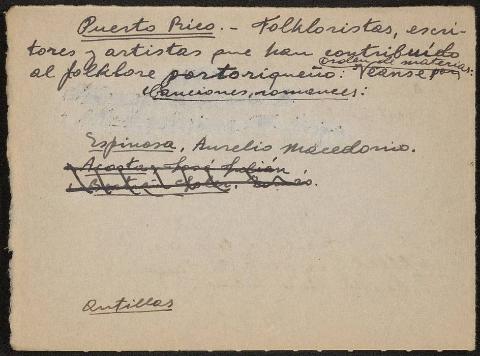 Puerto Rico.- Folkloristas, escri-
tores y artistas que han contribuído
al folklore portoriqueño: Véanse por
orden de materias:
Canciones, romances:
Espinosa, Aurelio Macedonio.
Acosta, José Julián
Antillas